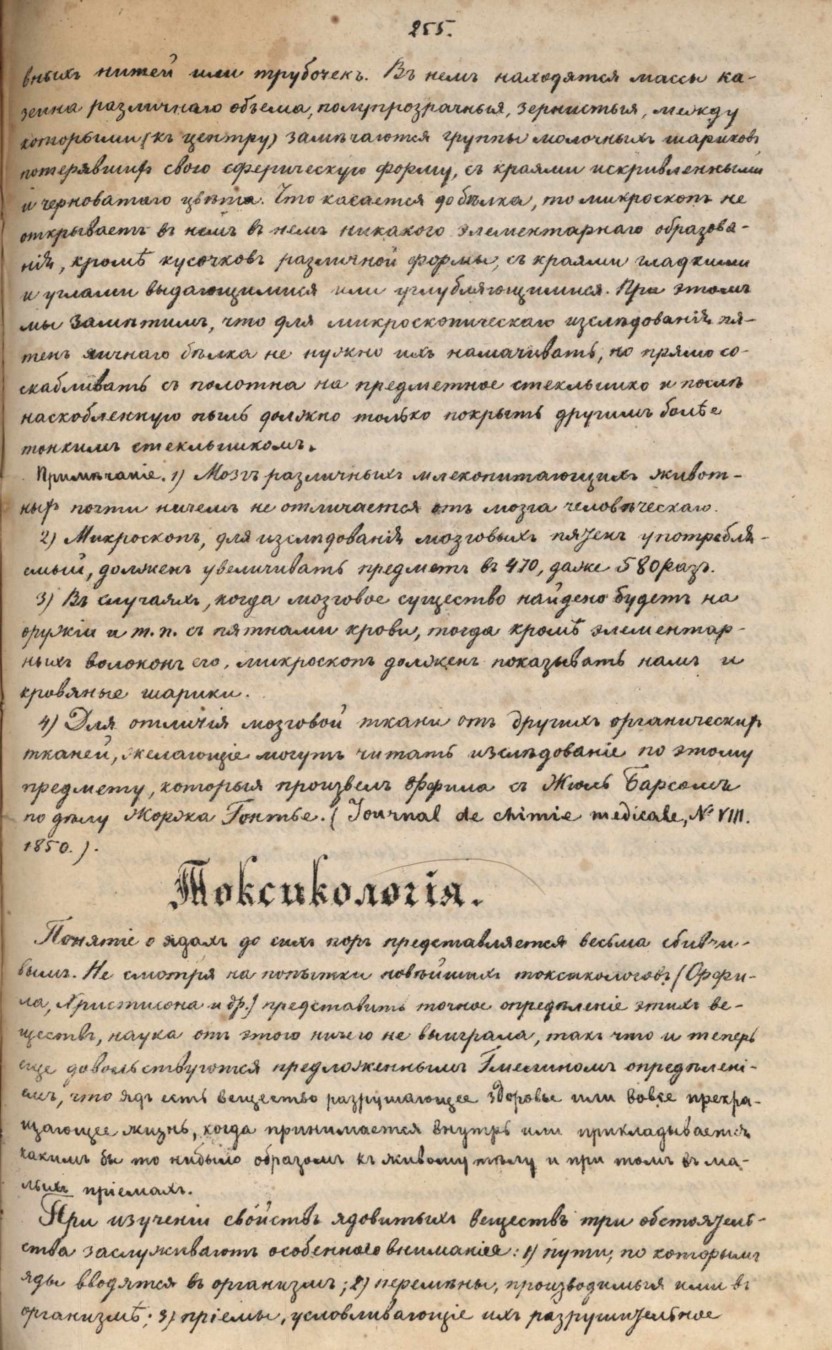 255.
вныхъ нитей или трубочекъ. Въ немъ находятся массы ка-
зеина различнаго объема, полупрозрачныя, зернистыя, между
которыми (къ центру) замѣчаются группы молочныхъ шариковъ
потерявшихъ свою сферическую форму, съ краями искривленными
и черноватаго цвѣта. Что касается до бѣлка, то микроскопъ не
открываетъ въ немъ въ немъ никакого элементарнаго образова-
нія, кромѣ кусочковъ различной формы, съ краями гладкими
и углами выдающимися или углубляющимися. При этомъ
мы замѣтимъ, что для микроскопическаго изслѣдованія пя-
тенъ яичнаго бѣлка не нужно ихъ намачивать, но прямо со-
скабливать съ полотна на предметное стеклышко и послѣ
наскобленную пыль должно только покрыть другимъ болѣе
тонкимъ стеклышкомъ.
Примѣчаніе. 1) Мозгъ различныхъ млекопитающихъ живот-
ныхъ почти ничемъ не отличается отъ мозга человѣческаго.
2) Микроскопъ, для изслѣдованія мозговыхъ пятенъ употребля-
емый, долженъ увеличивать предметъ въ 470, даже 580 разъ.
3) Въ случаяхъ, когда мозговое существо найдено будетъ на
оружіи и т. п. съ пятнами крови, тогда кромѣ элементар-
ныхъ волоконъ его, микроскопъ долженъ показывать намъ и
кровяные шарики.
4) Для отличія мозговой ткани отъ другихъ органическихъ
тканей, желающіе могутъ читать изслѣдованіе по этому
предмету, которыя произвелъ Орфила съ Жюль Барсемъ
по дѣлу Жоржа Гонтье. (Journal de chimie medicale, № VIII.
1850.).
Токсикологія.
Понятіе о ядахъ до сихъ поръ представляется весьма сбивчи-
вымъ. Не смотря на попытки новѣйшихъ токсикологовъ (Орфи-
ла, Христисона и др.) представить точное опредѣленіе этихъ ве-
ществъ, наука отъ этого ничего не выиграла, такъ что и теперь
еще довольствуются предложеннымъ Гмелиномъ опредѣлені-
емъ, что ядъ есть вещество разрушающее здоровье или вовсе прекра-
щающее жизнь, когда принимается внутрь или прикладывается
какимъ бы то нибыло образомъ къ живому тѣлу и при томъ въ ма-
лыхъ пріемахъ.
При изученіи свойствъ ядовитыхъ веществъ три обстоятель-
ства заслуживаютъ особеннаго вниманія: 1) пути, по которымъ
яды вводятся въ организмъ; 2) перемѣны, производимыя ими въ
организмѣ; 3) пріемы, условливающіе ихъ разрушительное